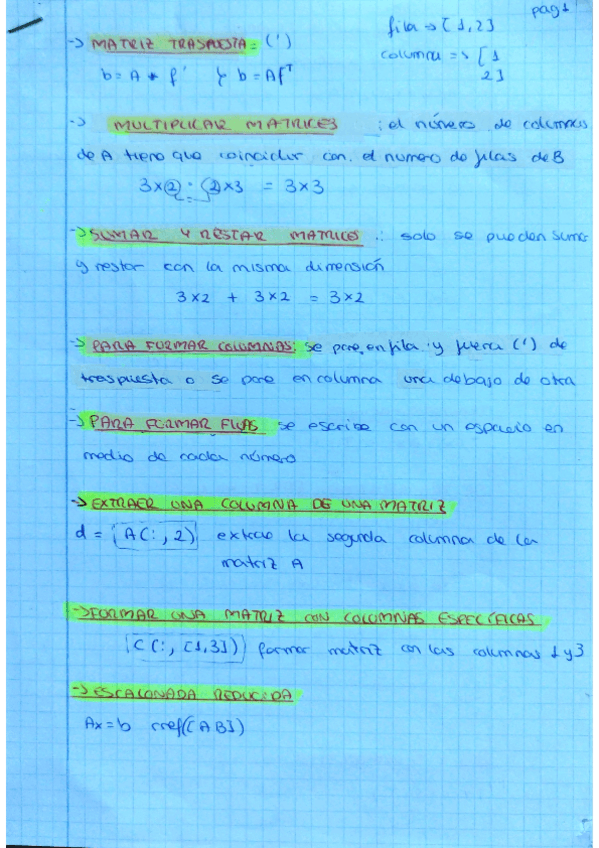 pag 1
fila → [1,2]
columna => [1
2]
→ MATRIZ TRASPUESTA = (')
b = A * f' } b = Af^T
→ MULTIPLICAR MATRICES : el número de columnas
de A tiene que coincidir con el numero de filas de B
3x2 · 2x3 = 3x3
→ SUMAR Y RESTAR MATRICES : solo se pueden sumar
y restar con la misma dimensión
3x2 + 3x2 = 3x2
→ PARA FORMAR COLUMNAS: se pone en fila y fuera (') de
traspuesta o se pone en columna una debajo de otra
→ PARA FORMAR FILAS se escribe con un espacio en
medio de cada número
→ EXTRAER UNA COLUMNA DE UNA MATRIZ
d = A(:,2) extrae la segunda columna de la
matriz A
→ FORMAR UNA MATRIZ CON COLUMNAS ESPECÍFICAS
C(:,[1,3]) formar matriz con las columnas 1 y 3
→ ESCALONADA REDUCIDA
Ax=b rref([AB])